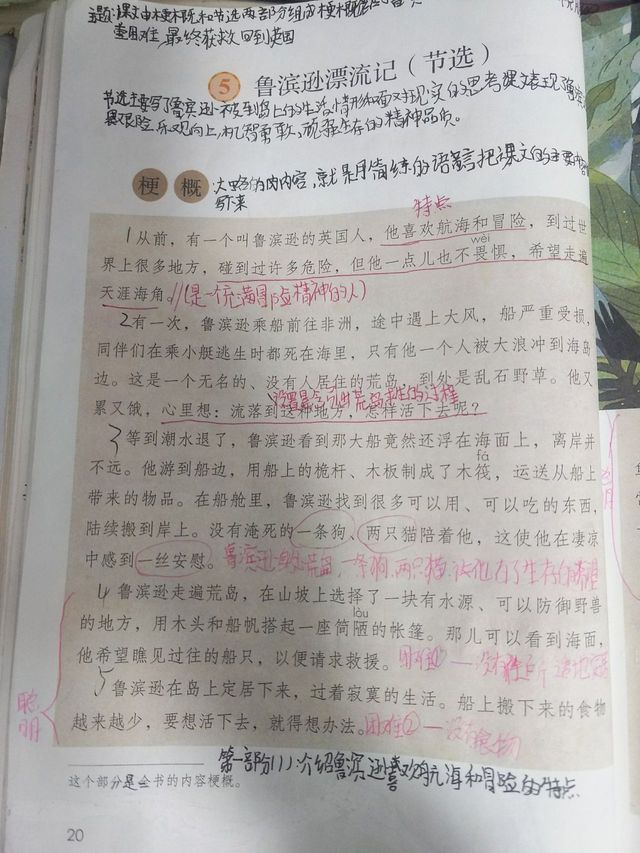 主题:课文由梗概和节选两部分组成梗概
重困难,最终获救回到英国
5 鲁滨逊漂流记(节选)
节选主要写了鲁滨逊被到岛上的生活情形和面对现实的思考课文表现
艰险,乐观向上,机智勇敢,顽强生存的精神品质。
梗概
大略的内容,就是用简练的语言把课文的主要内容
写下来
特点
1从前,有一个叫鲁滨逊的英国人,他喜欢航海和冒险,到过世
wèi
界上很多地方,碰到过许多危险,但他一点儿也不畏惧,希望走遍
天涯海角。//(是一个充满冒险精神的人)
2有一次,鲁滨逊乘船前往非洲,途中遇上大风,船严重受损,
同伴们在乘小艇逃生时都死在海里,只有他一个人被大浪冲到海岛
边。这是一个无名的、没有人居住的荒岛,到外是乱石野草。他又
累又饿,心里想:流落到这种地方,怎样活下去呢?
3等到潮水退了,鲁滨逊看到那大船竟然还浮在海面上,离岸并
fá
不远。他游到船边,用船上的桅杆、木板制成了木筏,运送从船上
带来的物品。在船舱里,鲁滨逊找到很多可以用、可以吃的东西,
陆续搬到岸上。没有淹死的一条狗、两只猫陪着他,这使他在凄凉
中感到一丝安慰。鲁滨逊身处荒岛,一条狗,两只猫,让他有了生存的
4鲁滨逊走遍荒岛,在山坡上选择了一块有水源、可以防御野兽
lòu
的地方,用木头和船帆搭起一座简陋的帐篷。那儿可以看到海面,
他希望瞧见过往的船只,以便请求救援。困难①—没有住所
5鲁滨逊在岛上定居下来,过着寂寞的生活。船上搬下来的食物
聪明
越来越少,要想活下去,就得想办法。困难②—没有食物
第一部分(1)介绍鲁滨逊喜欢航海和冒险的特点
这个部分是全书的内容梗概。
20